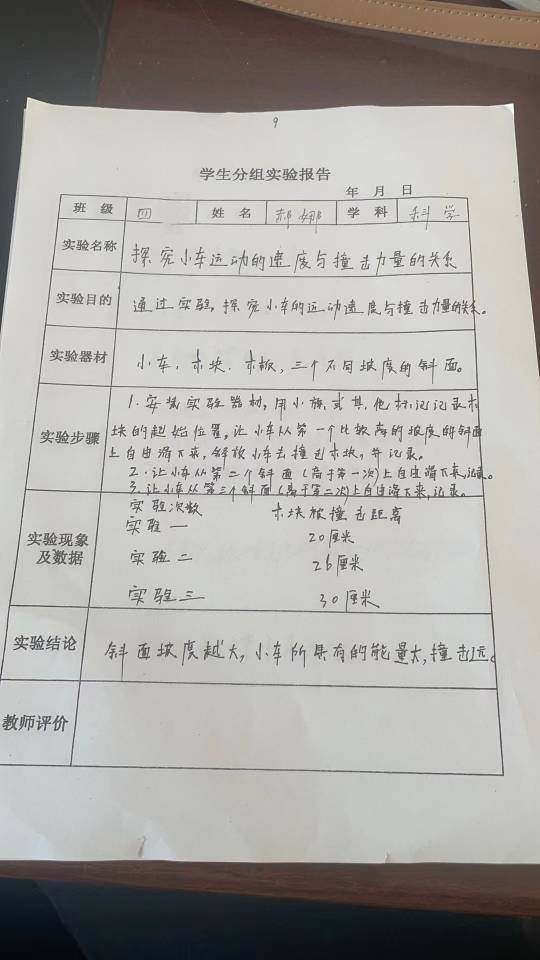 9
学生分组实验报告
年 月 日
班 级 四 姓 名 郝娜 学 科 科学
实验名称 探究小车运动的速度与撞击力量的关系
实验目的 通过实验,探究小车的运动速度与撞击力量的关系。
实验器材 小车、木块、木板,三个不同坡度的斜面。
实验步骤
1.安装实验器材,用小旗或其他标记记录木
块的起始位置,让小车从第一个比较高的坡度的斜面
上自由滑下来,释放小车去撞击木块,并记录。
2.让小车从第二个斜面(高于第一次)上自由滑下来,记录。
3.让小车从第三个斜面(高于第二次)上自由滑下来,记录。
实验现象及数据
实验次数 木块被撞击距离
实验一 20厘米
实验二 26厘米
实验三 30厘米
实验结论 斜面坡度越大,小车所具有的能量大,撞击远。
教师评价